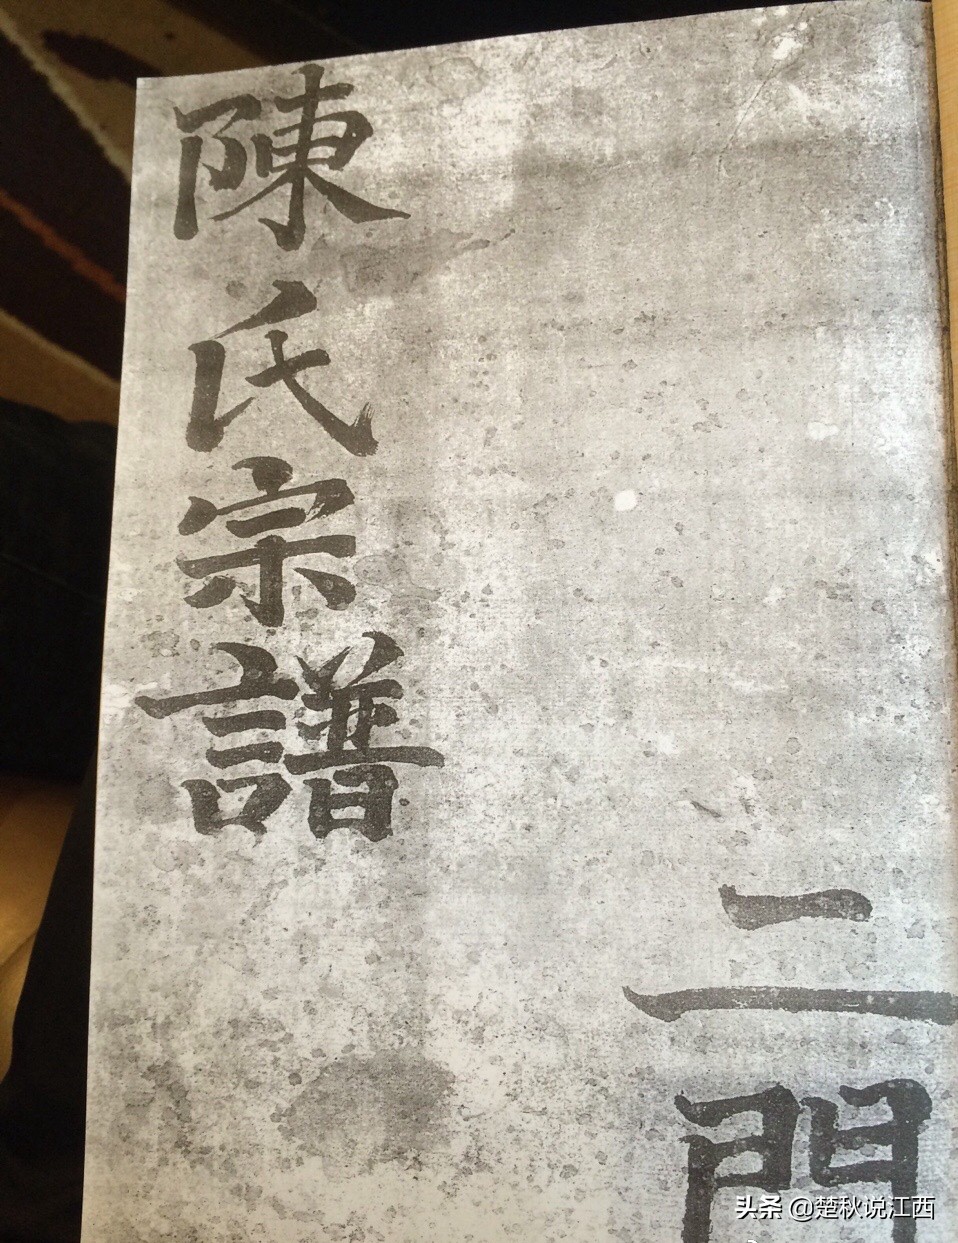 陳氏宗譜
二門
头条 @楚秋说江西